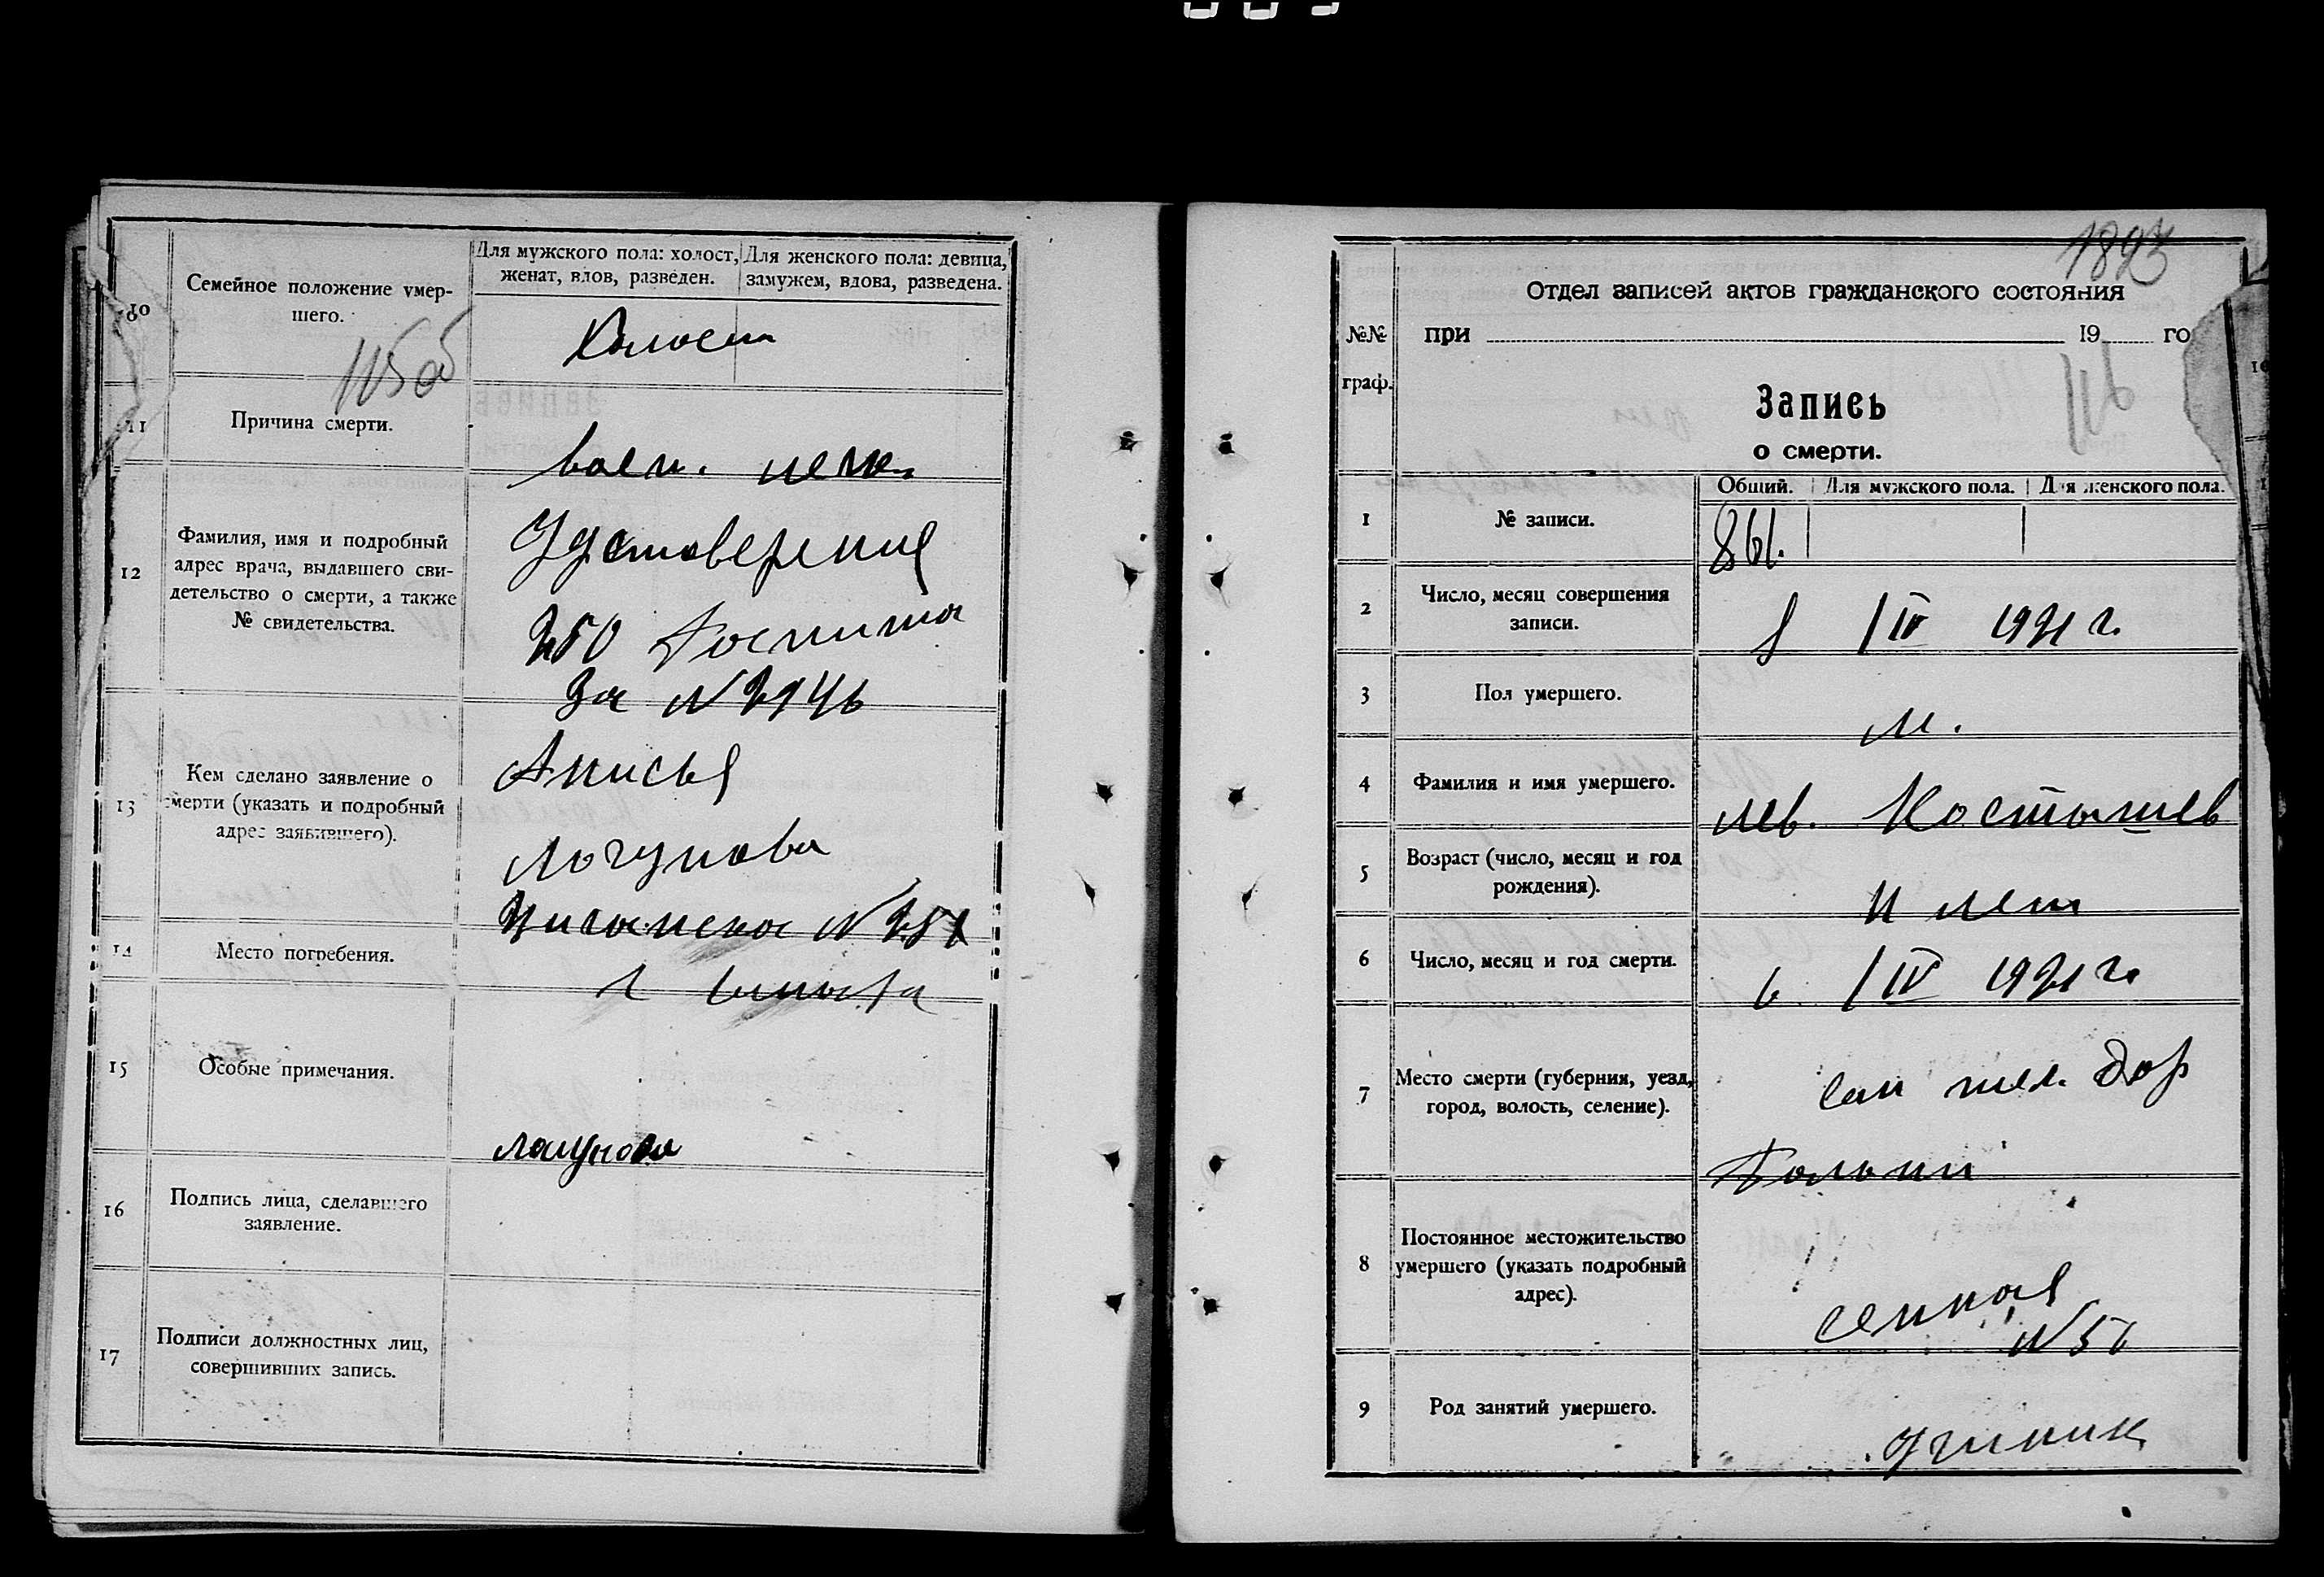 10
Семейное положение умершего.
Для мужского пола: холост, женат, вдов, разведен.
Для женского пола: девица, замужем, вдова, разведена.
Холост
115об
11
Причина смерти.
восп. легк.
12
Фамилия, имя и подробный
адрес врача, выдавшего сви-
детельство о смерти, а также
№ свидетельства.
Удстоверения
250 Госпита
За N 2946
13
Кем сделано заявление о
смерти (указать и подробный
адрес заявившего).
Анисья
Логунова
N 251
14
Место погребения.
15
Особые примечания.
16
Подпись лица, сделавшего
заявление.
17
Подписи должностных лиц,
совершивших запись.
№№
граф.
Отдел записей актов гражданского состояния
при 19 го
116
Запись
о смерти.
Общий. Для мужского пола. Для женского пола.
1
№ записи.
861.
2
Число, месяц совершения
записи.
8 /IV 1921 г.
3
Пол умершего.
м.
4
Фамилия и имя умершего.
лев. Костышев
5
Возраст (число, месяц и год
рождения).
11 лет
6
Число, месяц и год смерти.
6 /IV 1921 г.
7
Место смерти (губерния, уезд,
город, волость, селение).
жел. дор
8
Постоянное местожительство
умершего (указать подробный
адрес).
сенная
N 56
9
Род занятий умершего.
ученик